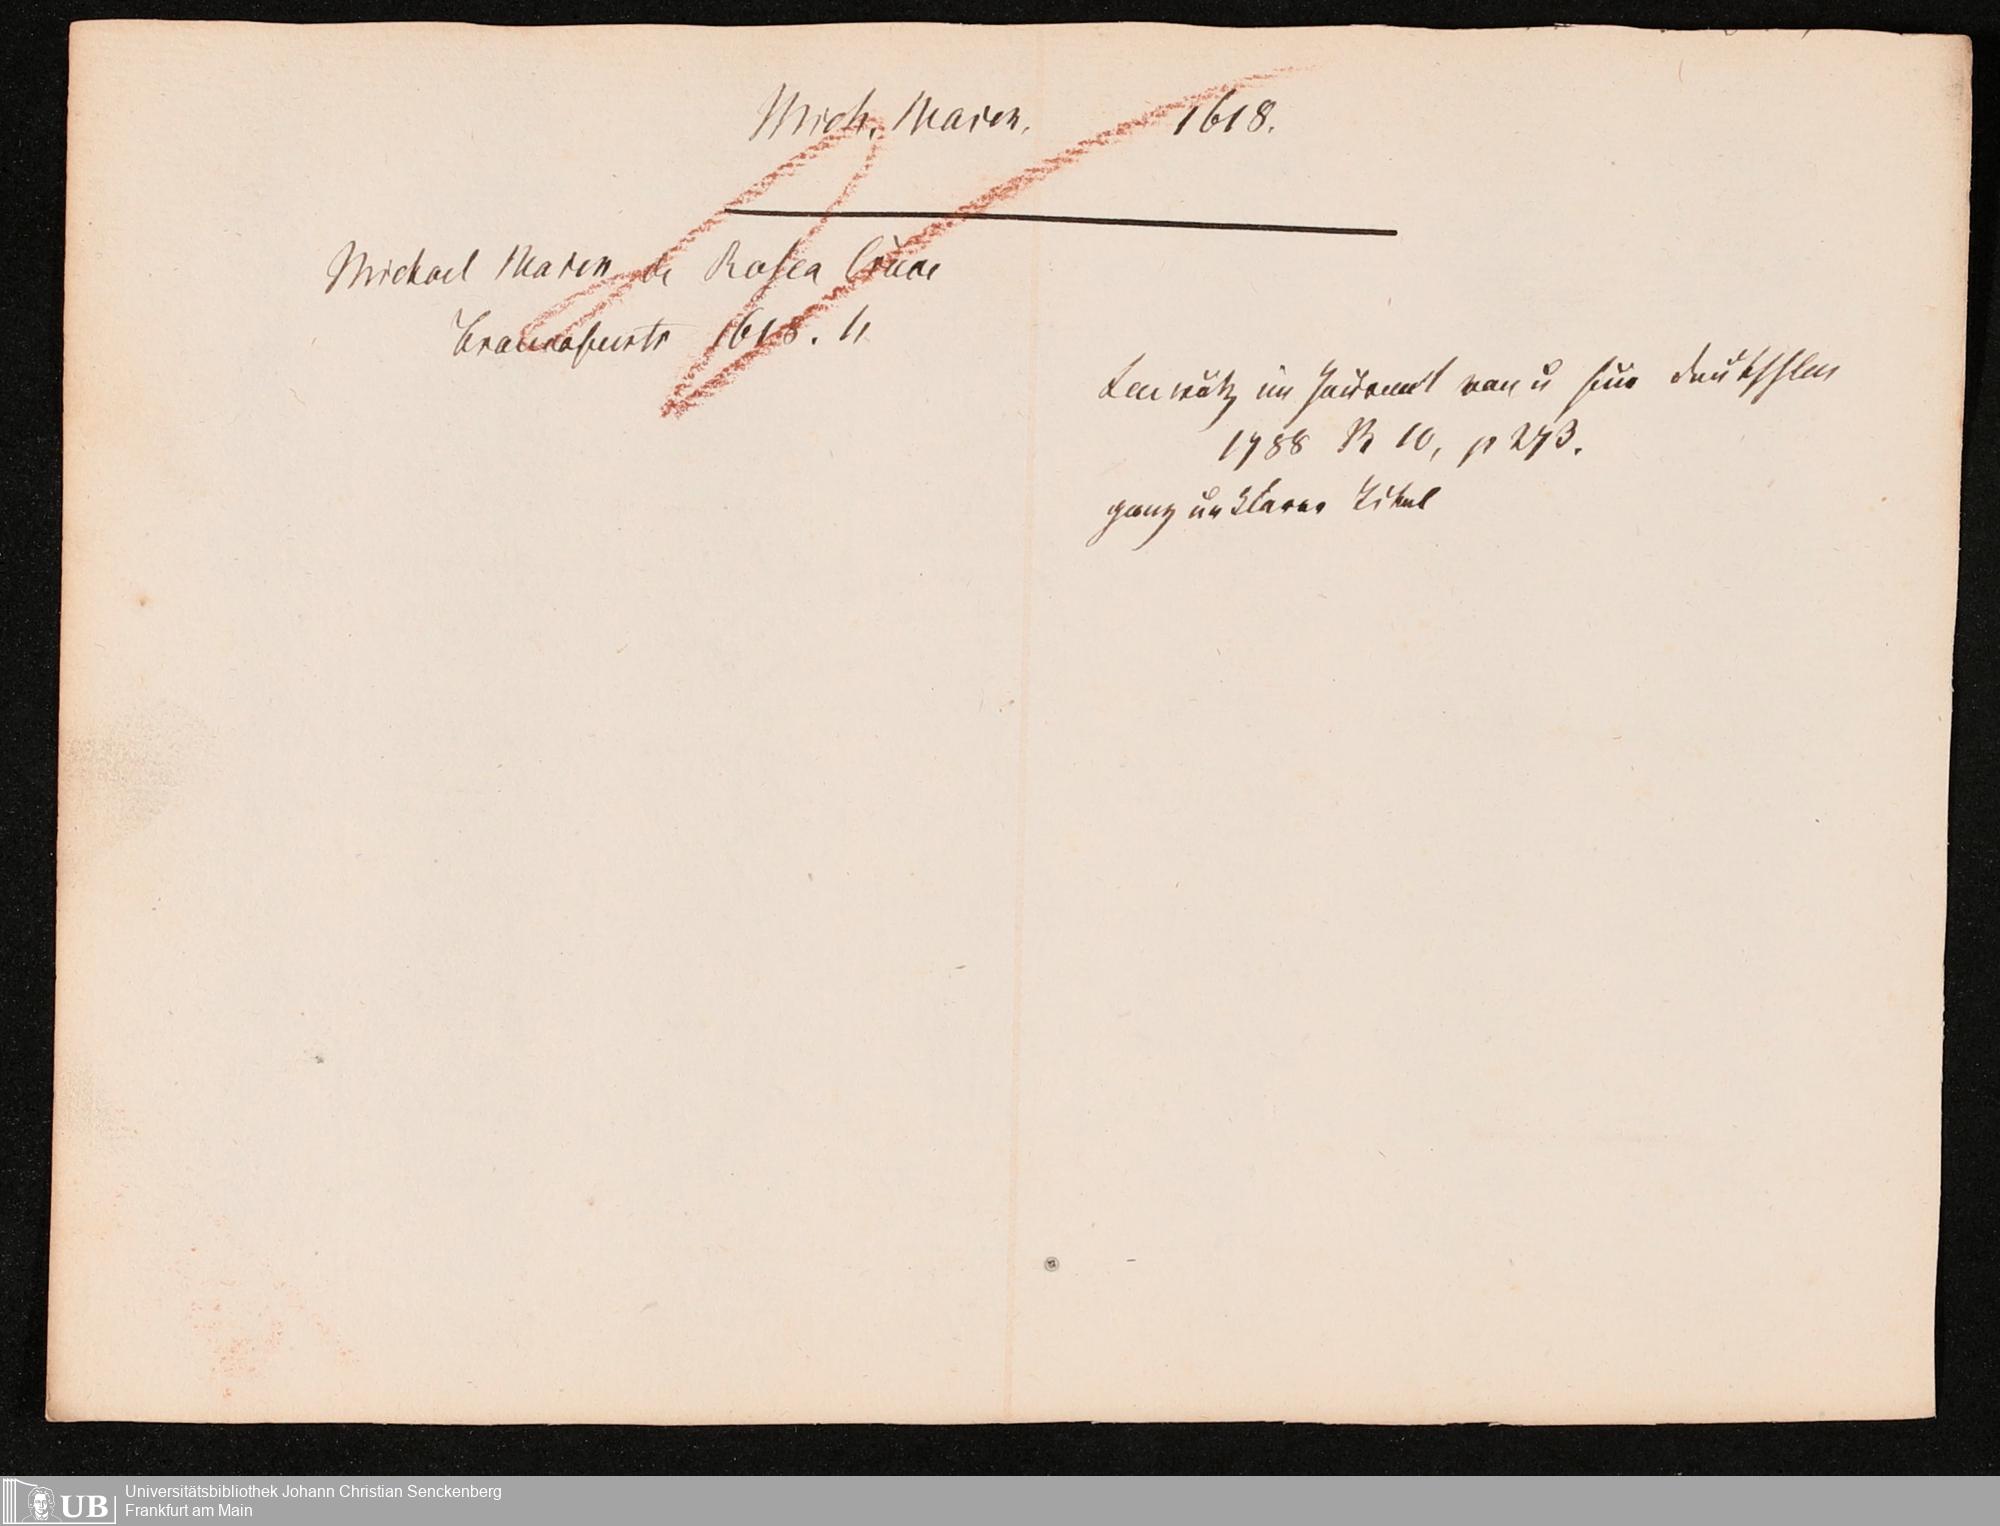 Mich. Maier. 1618.
Michael Maier de Rosea Cruce
Francofurti 1618. 4
im Journal von u für Deutschla
1788 St 10, p 273.
ganz unklarer Titel
UB
Universitätsbibliothek Johann Christian Senckenberg
Frankfurt am Main